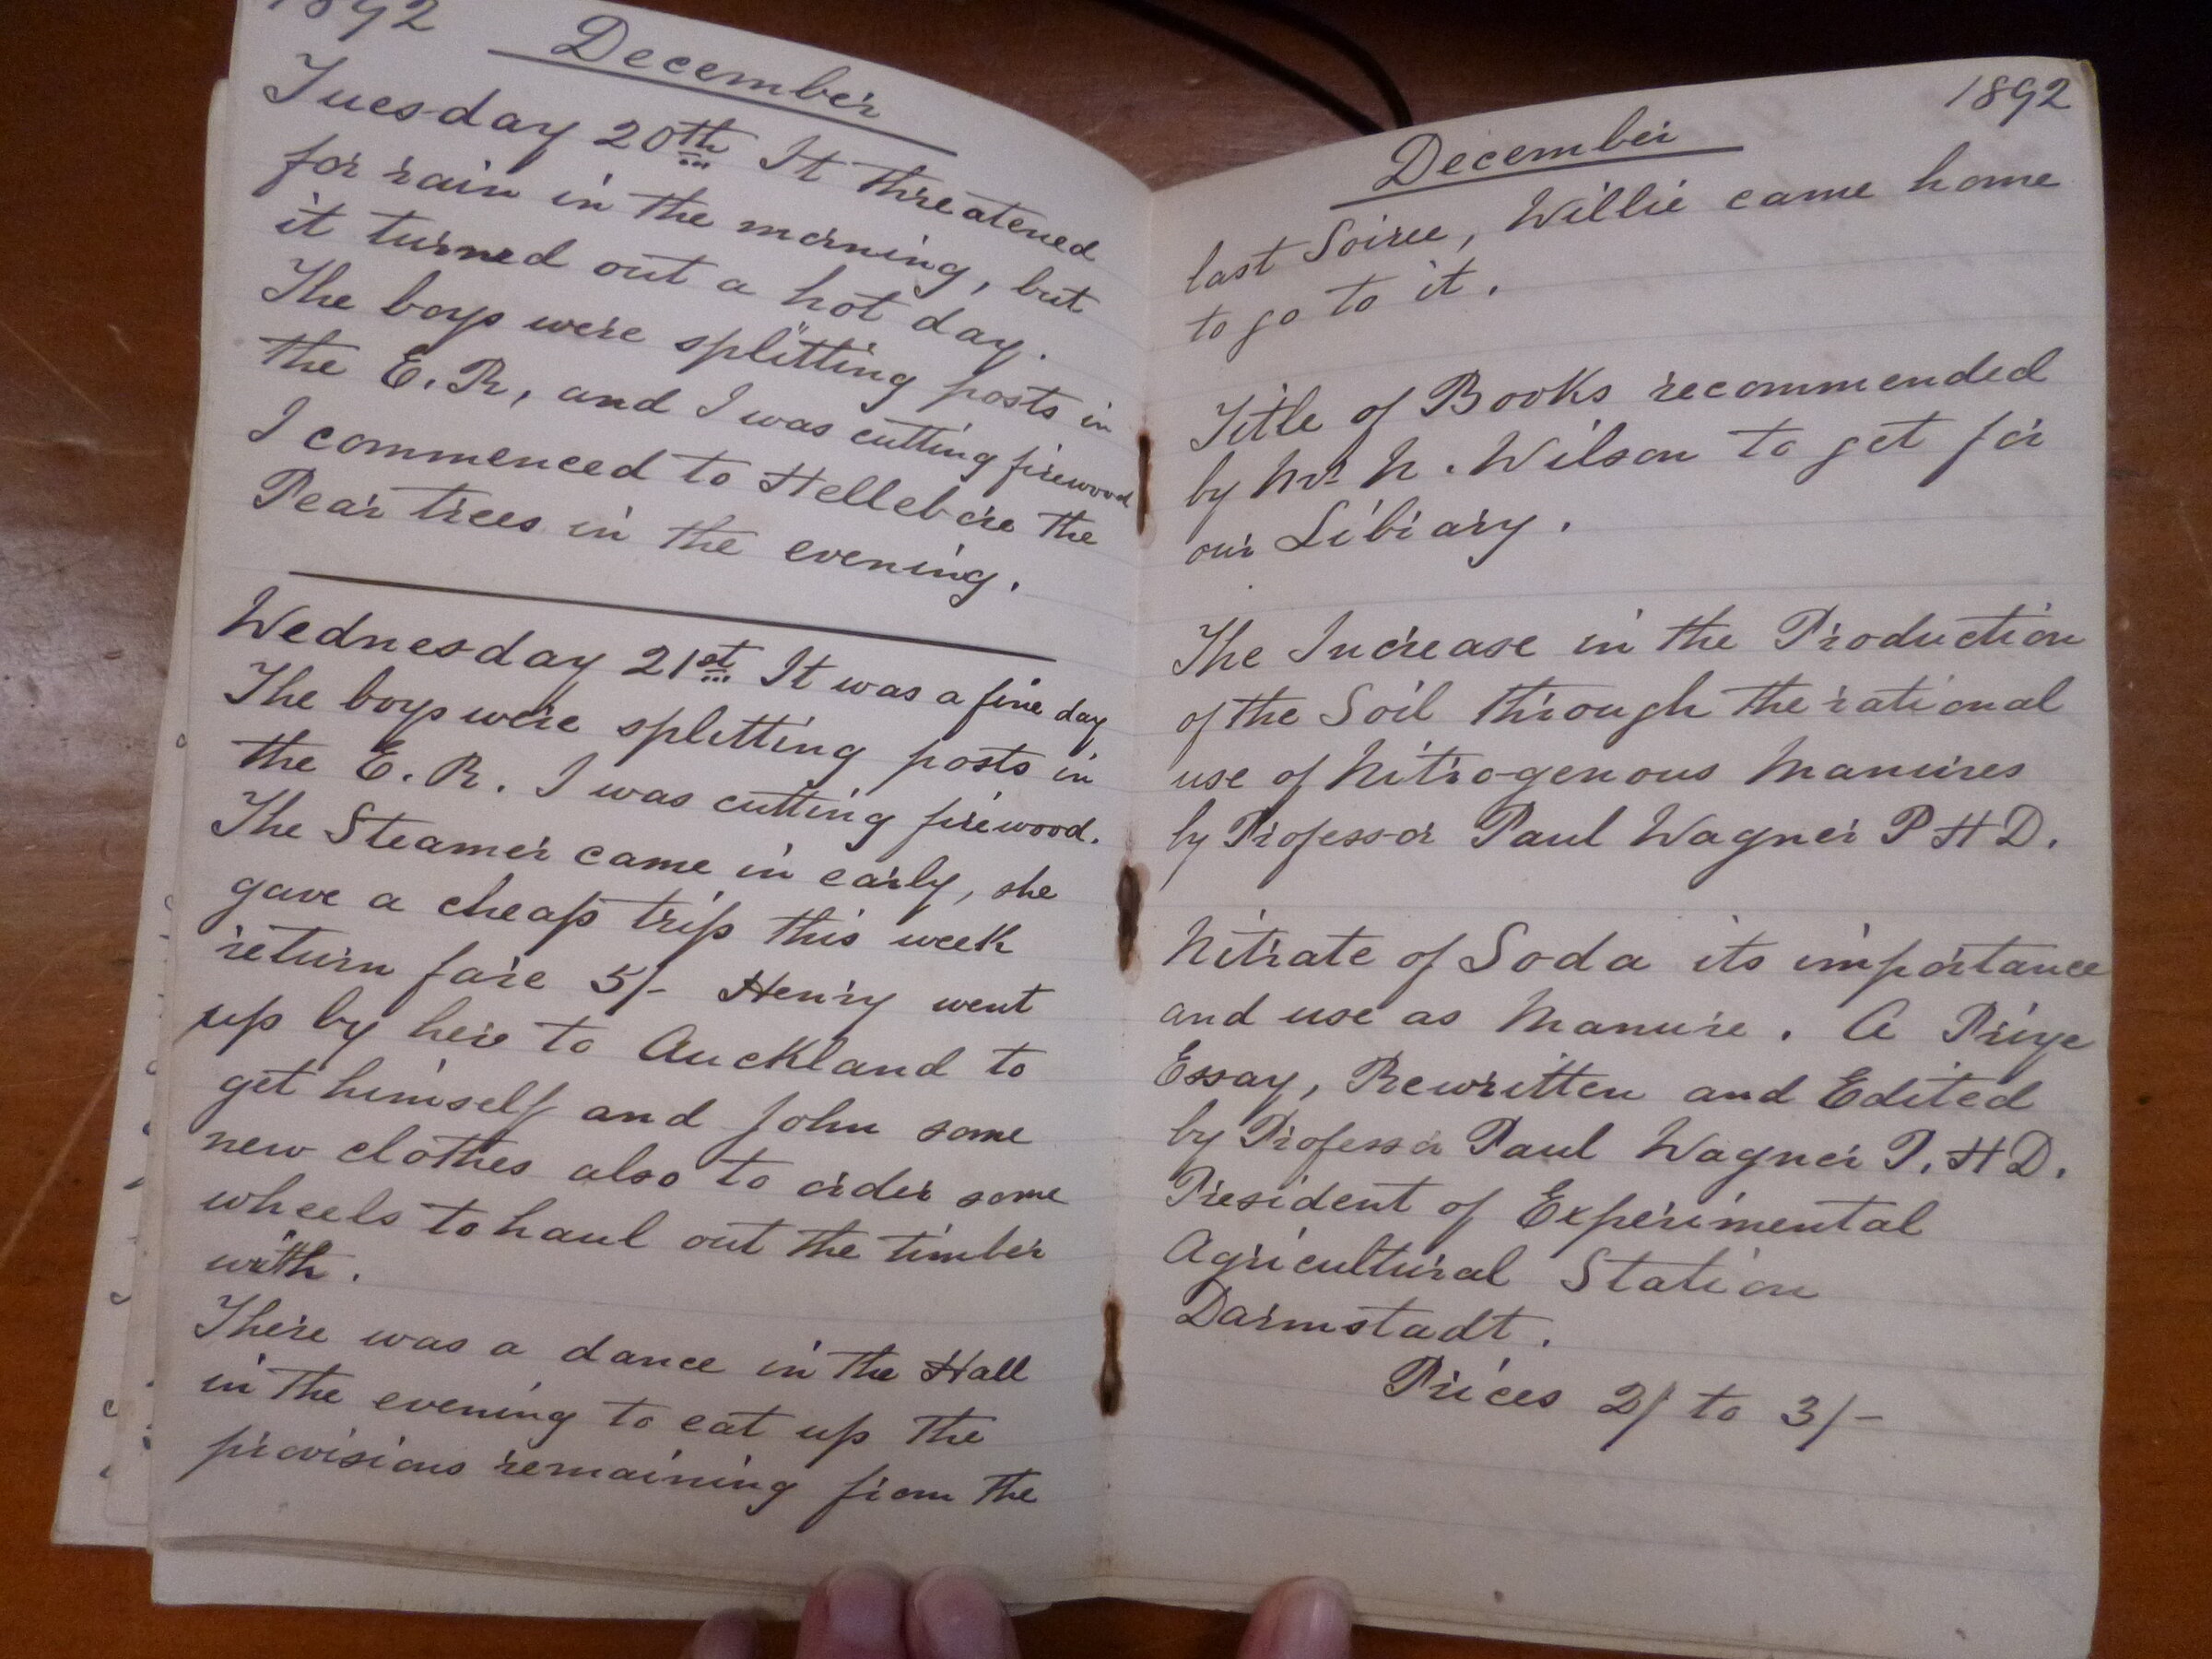 1892
December
Tuesday 20th It threatened
for rain in the morning, but
it turned out a hot day.
The boys were splitting posts in
the E. R, and I was cutting firewood
I commenced to Hellebore the
Pear trees in the evening.
Wednesday 21st It was a fine day
The boys were splitting posts in
the E. R. I was cutting firewood.
The Steamer came in early, she
gave a cheap trip this week
return fare 5/- Henry went
up by her to Auckland to
get himself and John some
new clothes also to order some
wheels to haul out the timber
with.
There was a dance in the Hall
in the evening to eat up the
provisions remaining from the
1892
December
last Soiree, Willie came home
to go to it.
Title of Books recommended
by Mr N. Wilson to get for
our Library.
The Increase in the Production
of the Soil through the rational
use of Nitrogenous Manures
by Professor Paul Wagner P H D.
Nitrate of Soda its importance
and use as Manure. A Prize
Essay, Rewritten and Edited
by Professor Paul Wagner P. H D.
President of Experimental
Agricultural Station
Darmstadt.
Prices 2/ to 3/-